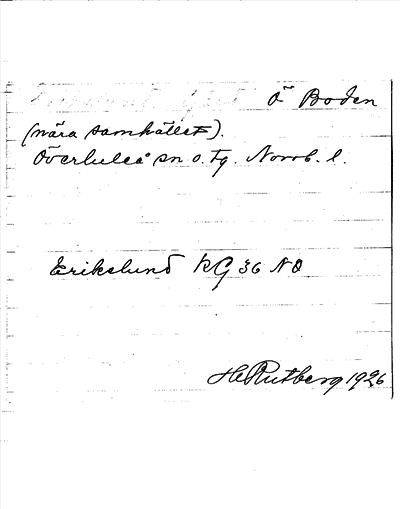 Ö Boden
(nära samhället).
Överluleå sn o. tg. Norrb. l.
Erikslund KG 36 NO
H Rutberg 1926